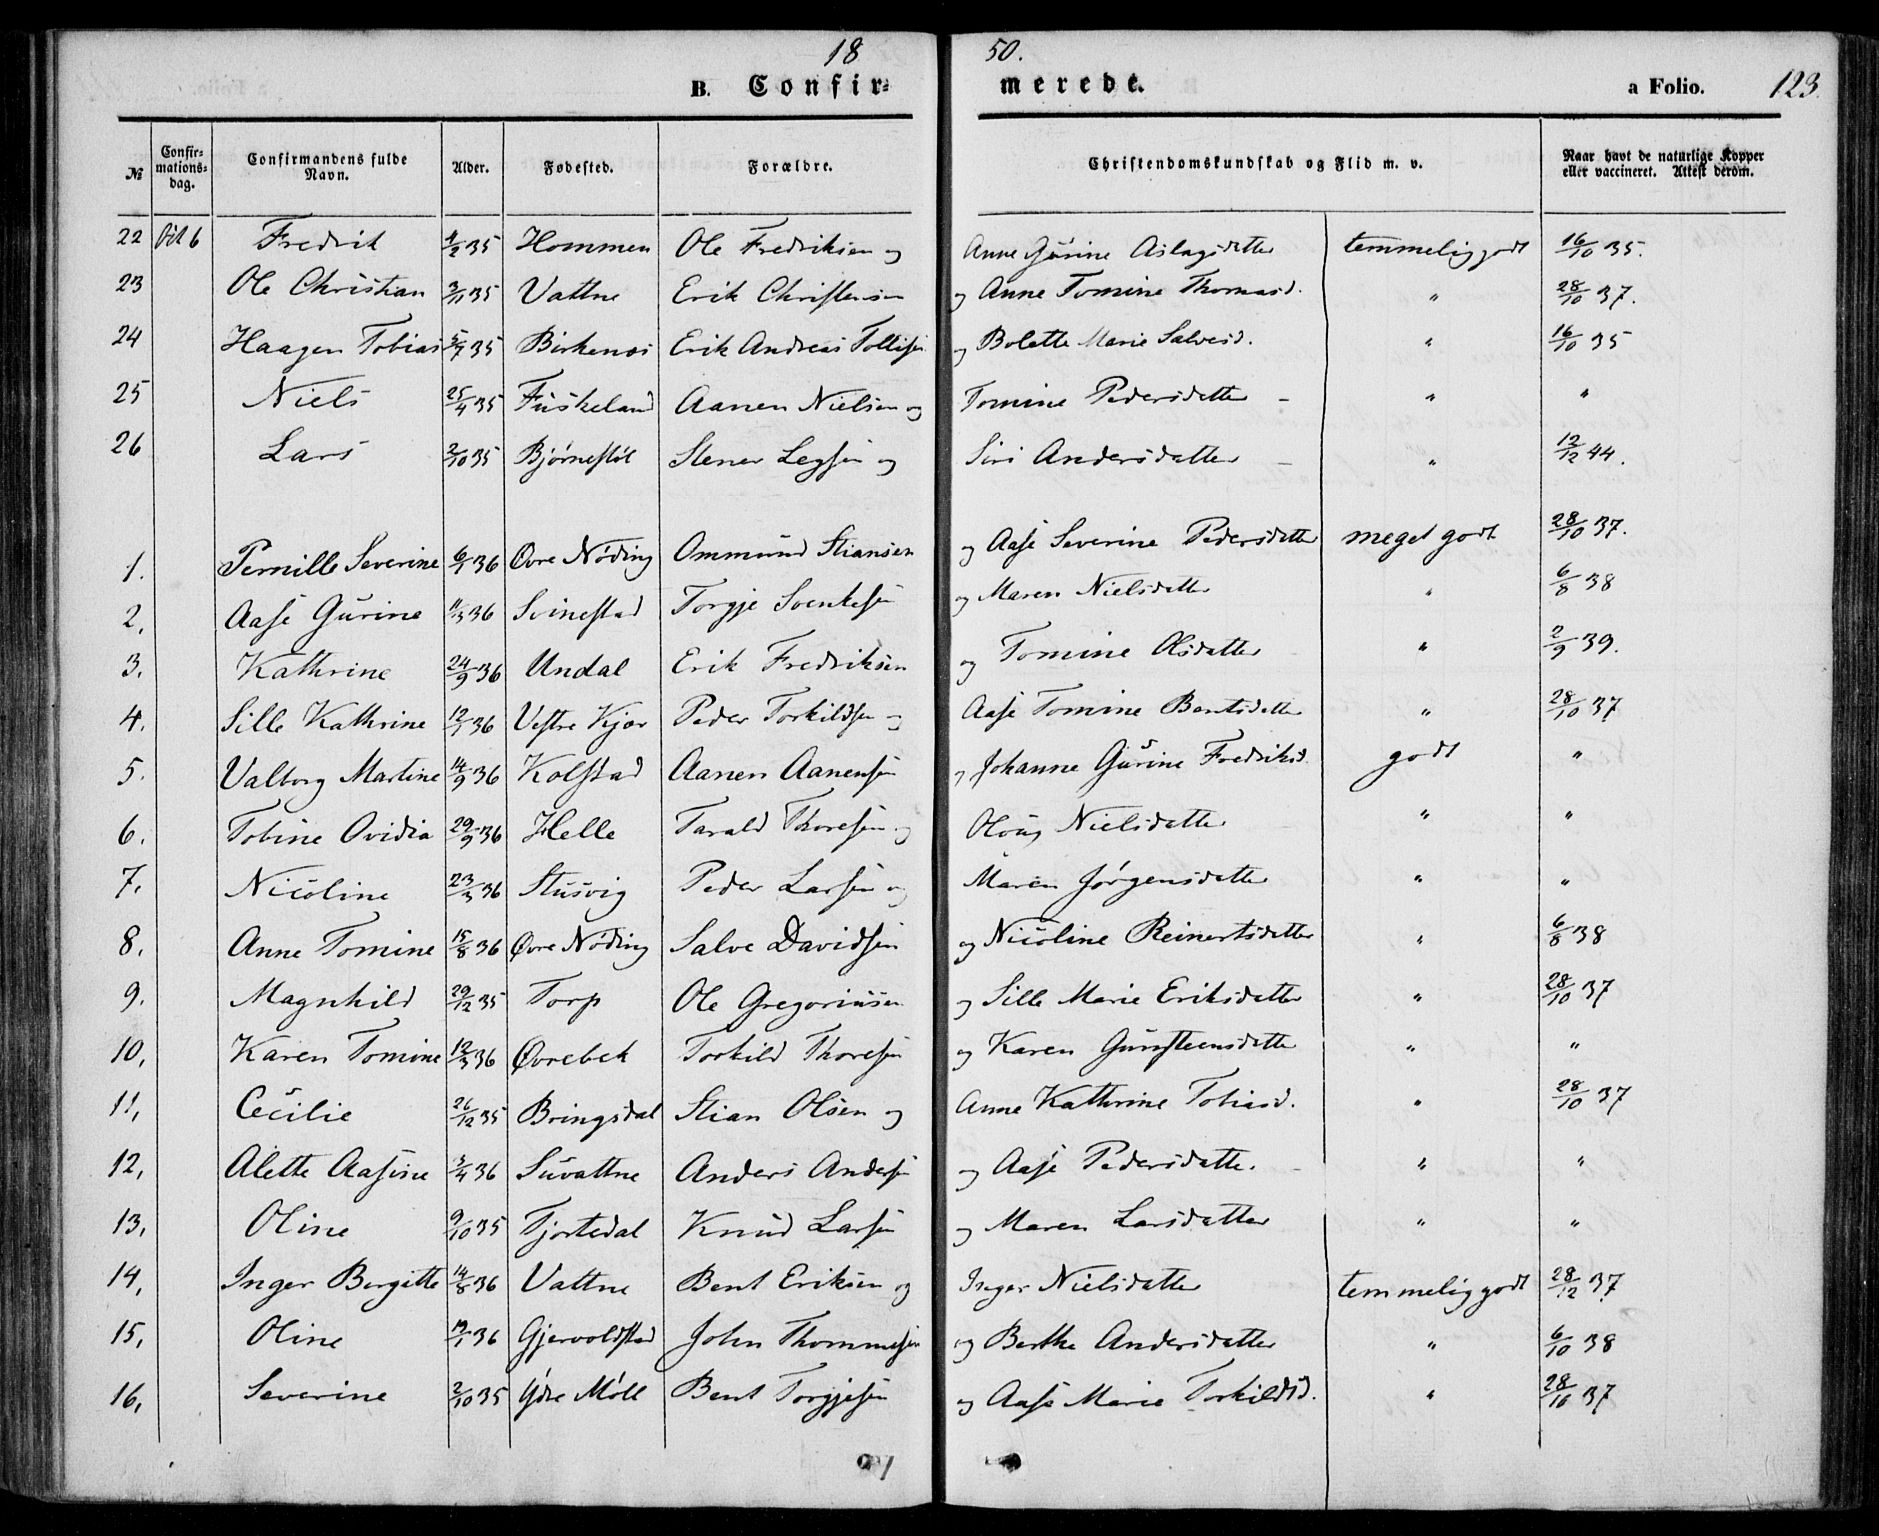 18 50.
B. Confir- merede. a Folio. 123.
№ Confir-mations-dag. Confirmandens fulde Navn. Alder. Fødested. Forældre. Christendomskundskab og Flid m. v. Naar havt de naturlige Kopper eller vaccineret. Attest derom.
22 Fredrik 4/2 35 Hommen Ole Fredriksen og Anne Gurine Aslagsdatter temmelig godt 16/10 35.
23 Ole Christian 3/11 35 Vattne Erik Christensen og Anne Tomine Thomasd. " 28/10 37.
24 Haagen Tobias 5/7 35 Birkenes Erik Andreas Tollisen og Bolette Marie Salvesd. " 16/10 35
25 Niels 25/4 35 Fuskeland Aanen Nielsen og Tomine Pedersdatter - " "
26 Lars 2/10 35 Bjørnestøl Stener Legsen og Siri Andersdatter - " 12/12 44.
1. Pernille Severine 6/1 36 Øvre Nøding Ommund Stiansen og Aase Severine Pedersdatter meget godt 28/10 37.
2, Aase Gurine 11/3 36 Svinestad Torgje Sventesen og Maren Nielsdatter " 6/8 38
3. Kathrine 24/9 36 Undal Erik Fredriksen og Tomine Olsdatter " 2/9 39.
4. Sille Kathrine 12/1 36 Vestre Kjær Peder Torkildsen og Aase Tomine Bentsdatter " 28/10 37
5. Valborg Martine 14/9 36 Kolstad Aanen Aanensen og Johanne Gurine Fredriksd. godt "
6. Tobine Ovidia 29/9 36 Helle Tarald Thoresen og Nielsdatter " "
7, Nicoline 23/3 36 Stusvig Peder Larsen og Maren Jørgensdatter " "
8, Anne Tomine 15/8 36 Øvre Nøding Salve Davidsen og Nicoline Reinertsdatter " 6/8 38
9, Magnhild 29/12 35 Torp Ole Gregoriusen og Sille Marie Eriksdatter " 28/10 37
10, Karen Tomine 12/3 36 Øvrebek Torkild Thoresen og Karen Gunsteensdatter " "
11, Cecilie 26/12 35 Bringsdal Stian Olsen og Anne Kathrine Tobiasd. " 28/10 37
12, Alette Aasine 3/4 36 Suvattne Anders Andersen og Aase Pedersdatter. " "
13, Oline 9/10 35 Tjortedal Knud Larsen og Maren Larsdatter " "
14, Inger Bergitte 14/8 36 Vattne Bent Eriksen og Inger Nielsdatter temmelig godt 28/12 37
15, Oline 19/1 36 Gjervoldstad John Thommesen og Berthe Andersdatter " 6/10 38
16, Severine 2/10 35 Ydre Møll Bent Torgjesen og Aase Marie Torkildsd. " 28/10 37